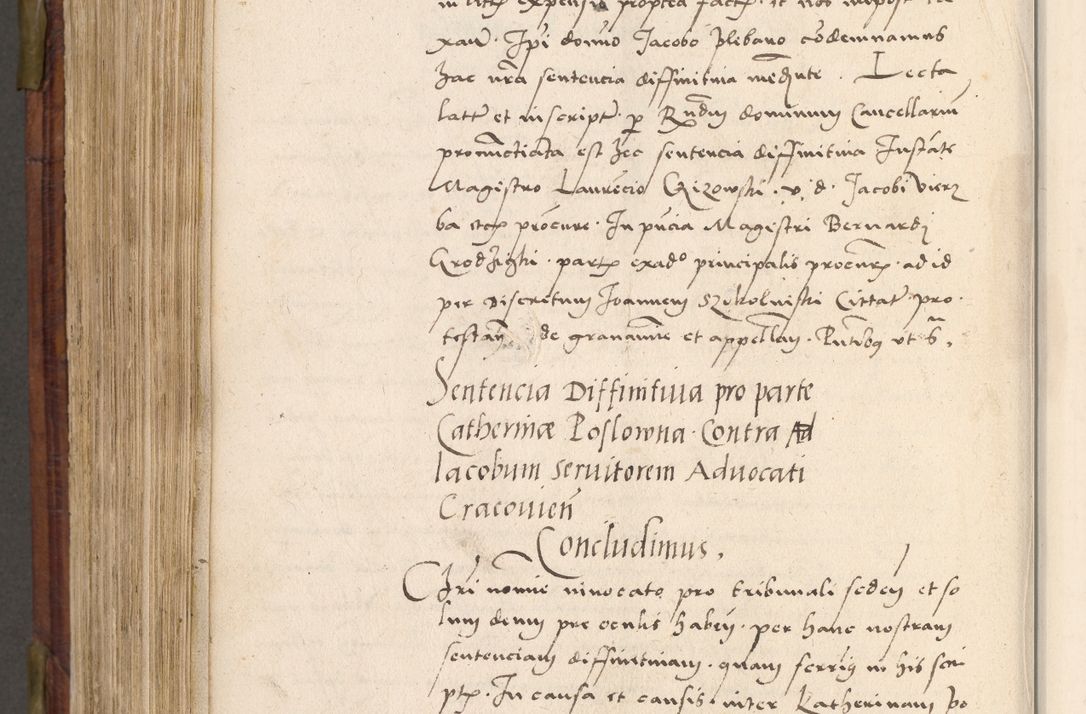 xaw̃. Ip̃i dom̃o Jacobo plebano cõdemnamus
hac nr̃a sentencia diffinitiua mediãte. Lecta
latt̃ et in script̃ p Rñdum dominum Cancellariũ
pronunctiata est hec sentencia diffinitiua Instãte
Magistro Laurẽcio Czizowski. v. d. Jacobi Vierz
ba procure. In pñcia Magistri Bernardj
Grodzighi. part exad° principalis procur̃. ad id
per Discretum Joannem Szkolniski Cittat̃. pro.
testañ de grauamie et appellañ. Pñtibus vt s̃.
Sentencia Diffinitiua pro parte
Catherinæ Poslowna Contra Ad
Iacobum seruitorem Aduocati
Cracouieñ
Concludimus,
Chri nomie inuocato pro tribunali seden et so
lum deum pre oculis haben. per hanc nostram
sentenciam diffinitiuam. quam ferrimus in his scri
pt. In causa et causis inter Katherinam Po